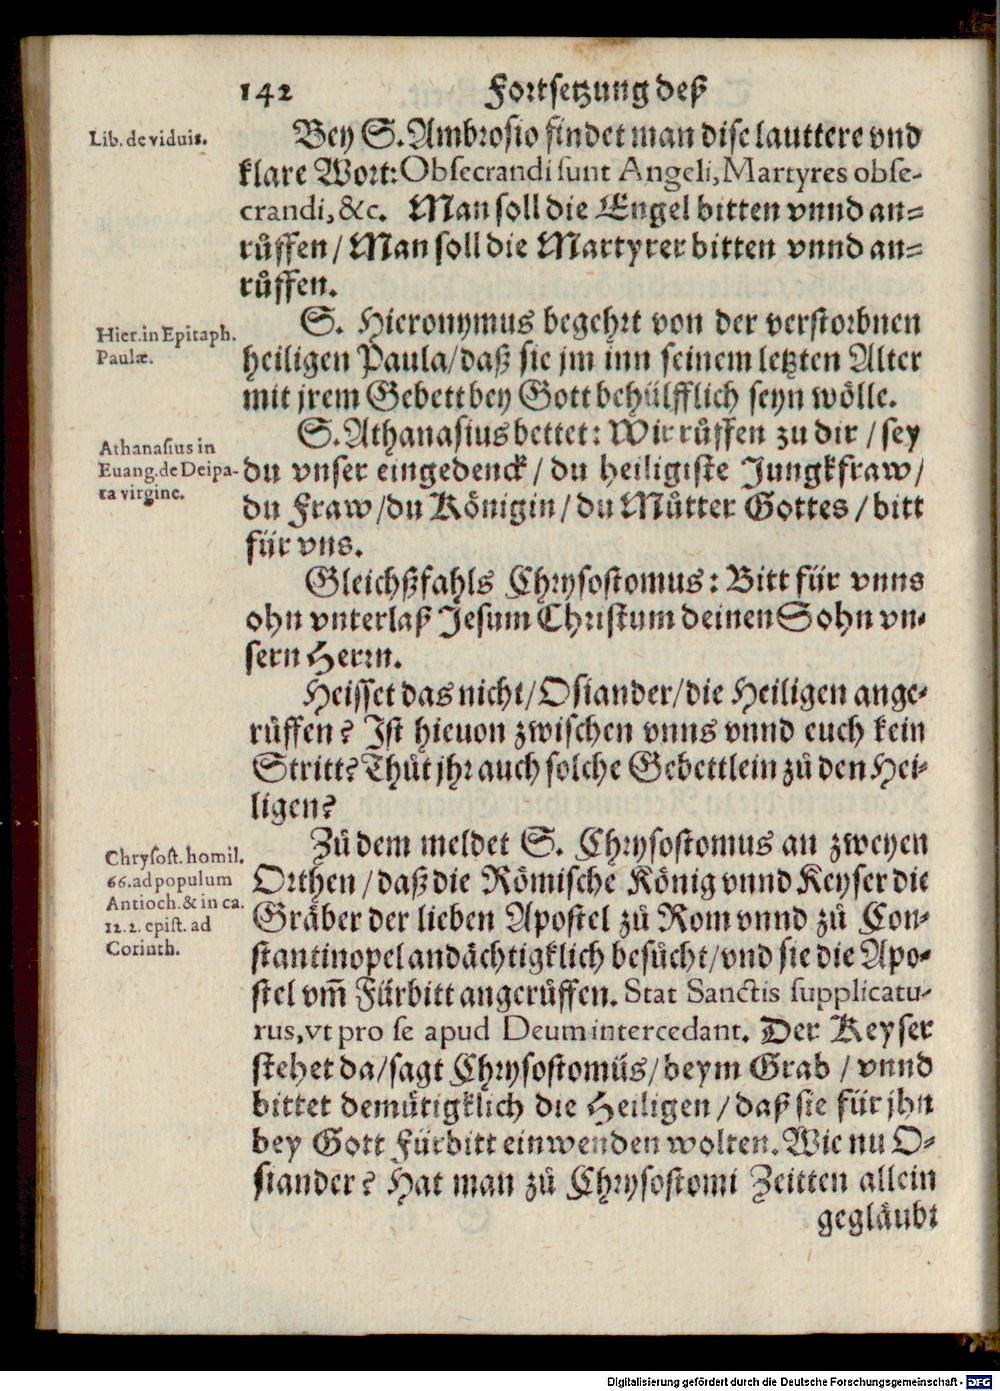 142 Fortsetzung deß
Lib. de viduis.
Bey S. Ambrosio findet man dise lauttere vnd
klare Wort: Obsecrandi sunt Angeli, Martyres obse-
crandi, &c. Man soll die Engel bitten vnnd an-
růffen / Man soll die Martyrer bitten vnnd an-
růffen.
Hier. in Epitaph.
Paulæ.
S. Hieronymus begehrt von der verstorbnen
heiligen Paula / daß sie jm inn seinem letzten Alter
mit jrem Gebett bey Gott behülfflich seyn wölle.
Athanasius in
Euang. de Deipa-
ra virgine.
S. Athanasius bettet: Wir růffen zu dir / sey
du vnser eingedenck / du heiligiste Jungkfraw /
du Fraw / du Königin / du Můtter Gottes / bitt
für vns.
Gleichßfahls Chrysostomus: Bitt für vnns
ohn vnterlaß Jesum Christum deinen Sohn vn-
sern Herrn.
Heisset das nicht / Osiander / die Heiligen ange-
růffen? Ist hieuon zwischen vnns vnnd euch kein
Stritt? Thůt jhr auch solche Gebettlein zů den Hei-
ligen?
Chrysost. homil.
66. ad populum
Antioch. & in ca.
12. 2. epist. ad
Corinth.
Zů dem meldet S. Chrysostomus an zweyen
Orthen / daß die Römische König vnnd Keyser die
Gräber der lieben Apostel zů Rom vnnd zů Con-
stantinopel andächtigklich besůcht / vnd sie die Apo-
stel vm̃ Fürbitt angerůffen. Stat Sanctis supplicatu-
rus, vt pro se apud Deum intercedant. Der Keyser
stehet da / sagt Chrysostomůs / beym Grab / vnnd
bittet demütigklich die Heiligen / daß sie für jhn
bey Gott Fürbitt einwenden wolten. Wie nu O-
siander? Hat man zů Chrysostomi Zeitten allein
gegläubt
Digitalisierung gefördert durch die Deutsche Forschungsgemeinschaft - DFG